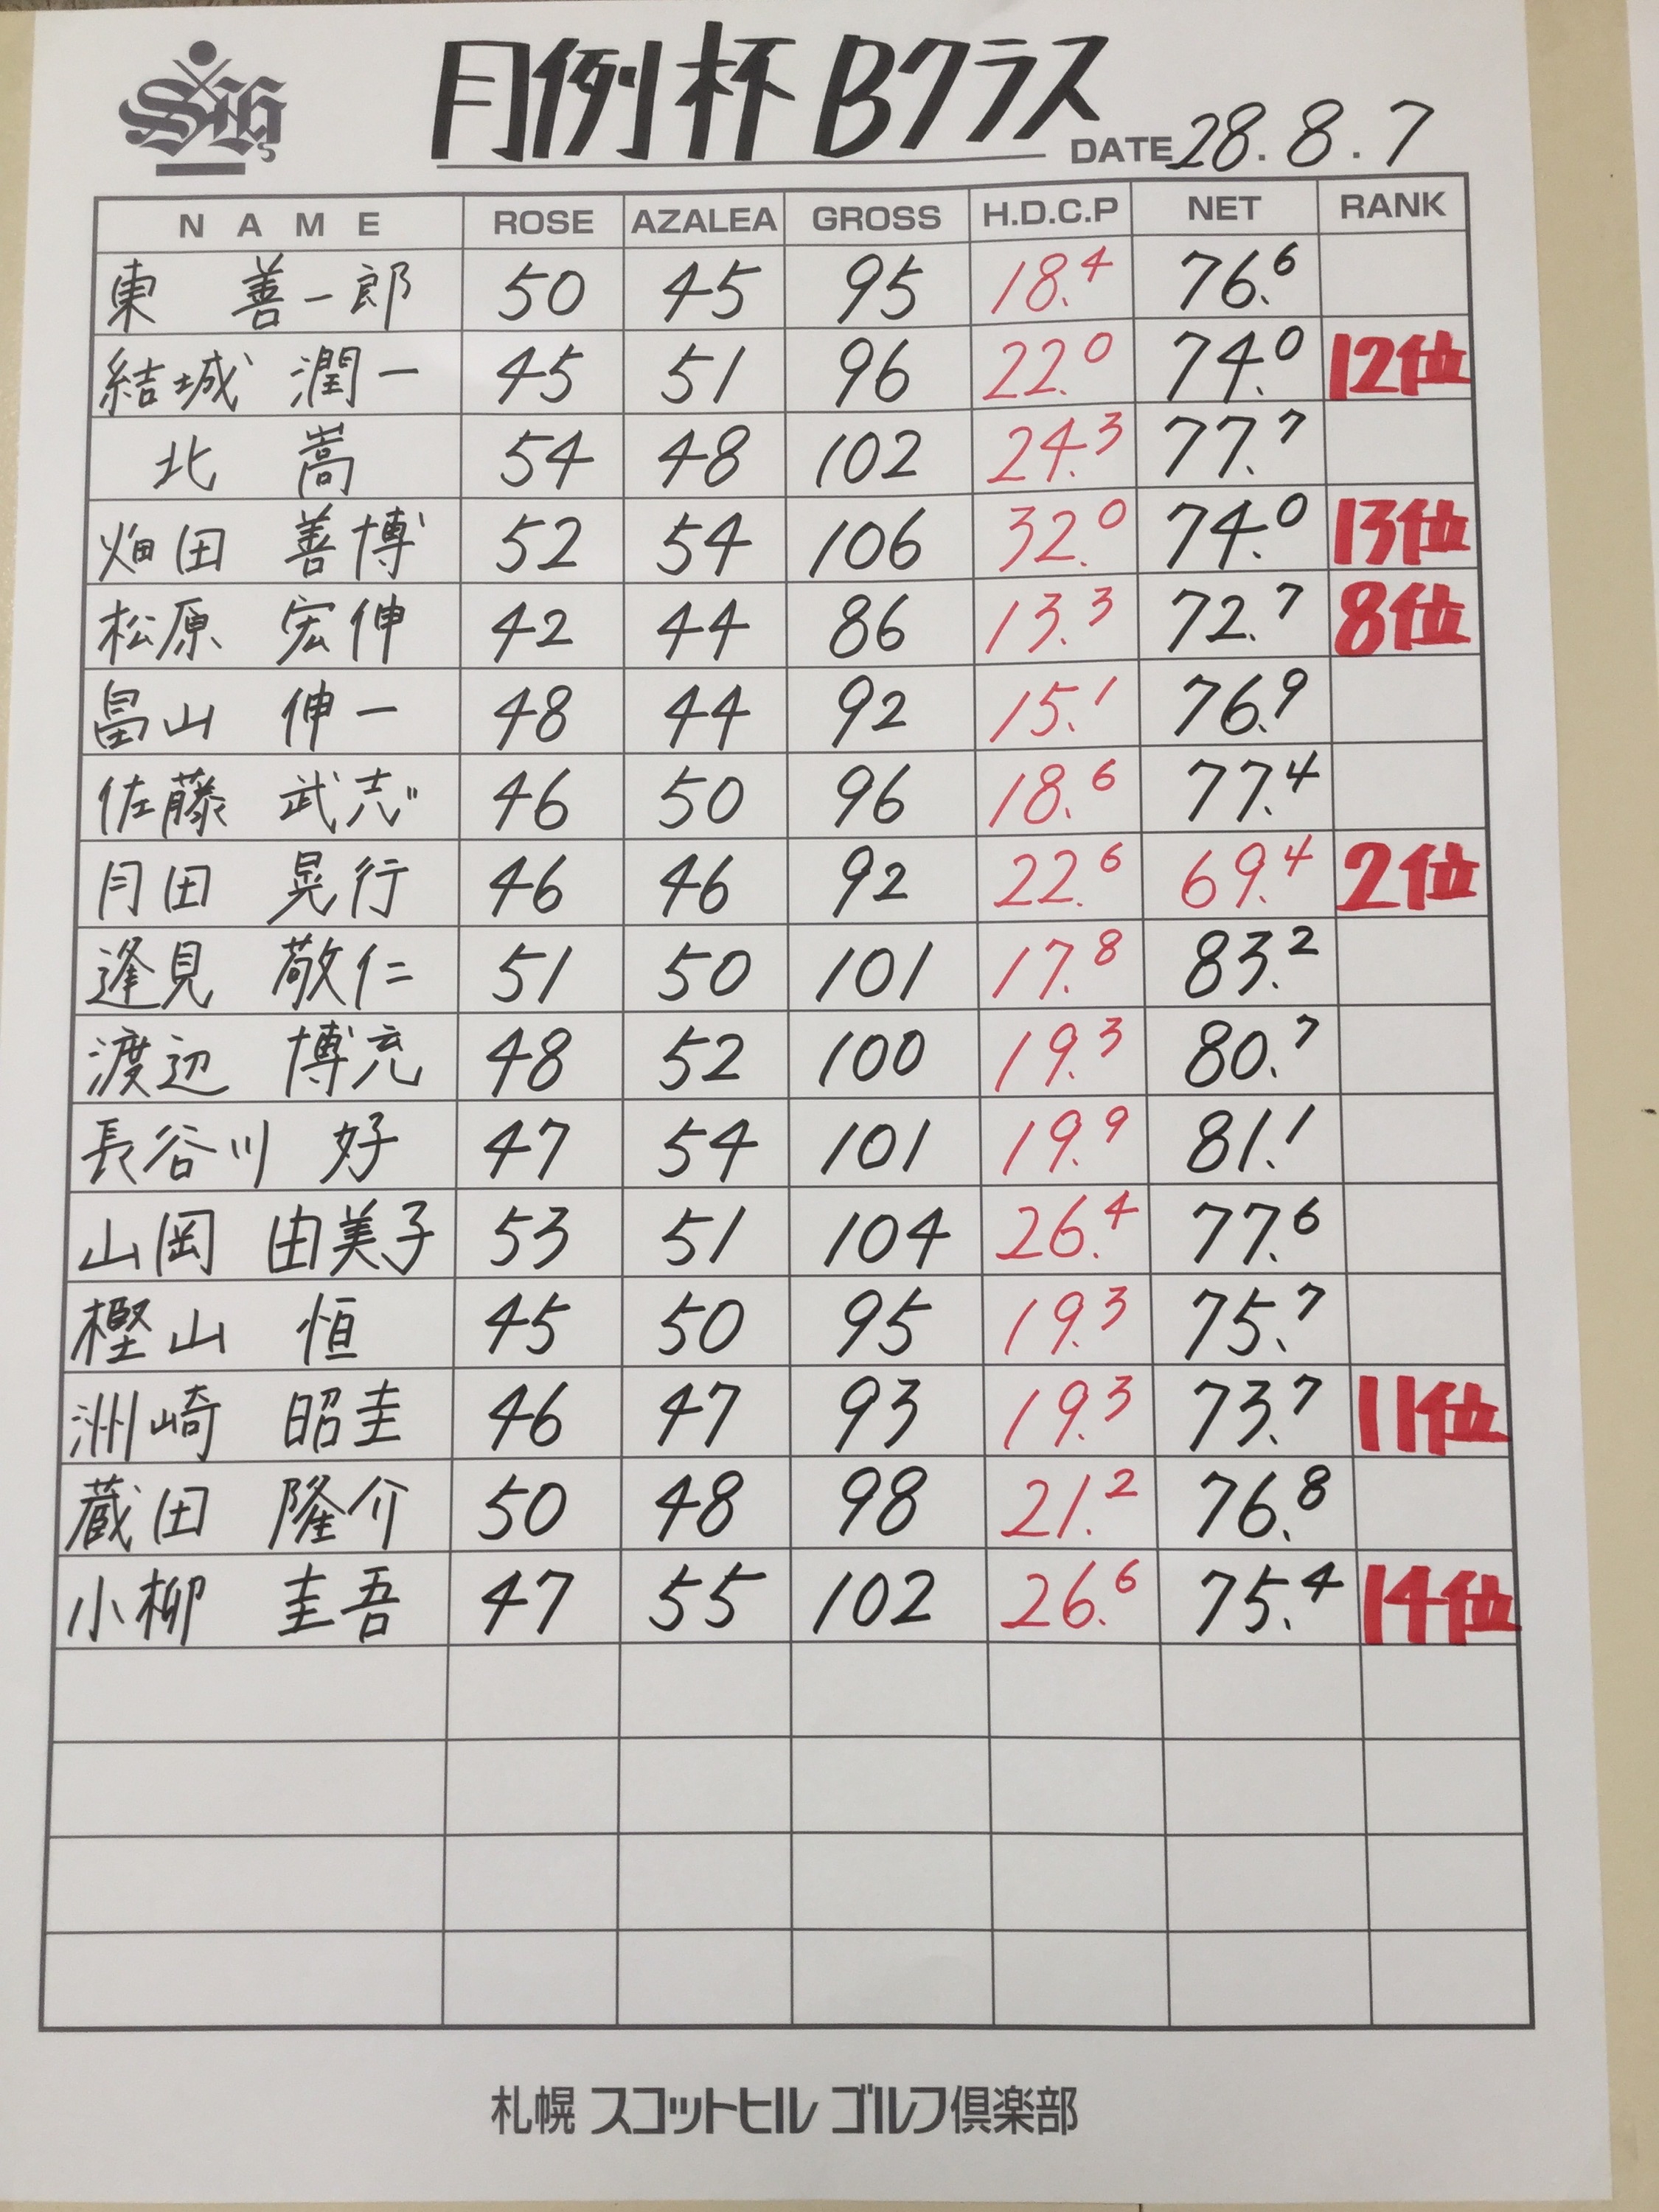 月例杯 Bクラス
DATE 28.8.7
NAME ROSE AZALEA GROSS H.D.C.P NET RANK
東 善一郎 50 45 95 18.4 76.6
結城 潤一 45 51 96 22.0 74.0 12位
北 嵩 54 48 102 24.3 77.7
畑田 善博 52 54 106 32.0 74.0 13位
松原 宏伸 42 44 86 13.3 72.7 8位
畠山 伸一 48 44 92 15.1 76.9
佐藤 武志 46 50 96 18.6 77.4
月田 晃行 46 46 92 22.6 69.4 2位
逢見 敬仁 51 50 101 17.8 83.2
渡辺 博充 48 52 100 19.3 80.7
長谷川 好 47 54 101 19.9 81.1
山岡 由美子 53 51 104 26.4 77.6
樫山 恒 45 50 95 19.3 75.7
洲崎 昭圭 46 47 93 19.3 73.7 11位
蔵田 隆介 50 48 98 21.2 76.8
小柳 圭吾 47 55 102 26.6 75.4 14位
札幌 スコットヒル ゴルフ倶楽部